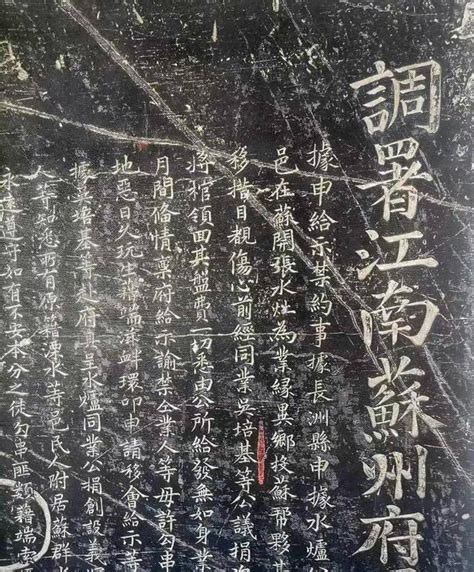 調署江南蘇州府
據申給示禁約事據長洲縣申據水爐
邑在蘇開張水灶為業緣異鄉投蘇幫夥
移揩目覩傷心前經同業吳培基等公議捐
將棺領回其盤費一切悉由公所給發無如身業
月間俻情稟府給示諭禁企業人等毋許勾串
地惡日久玩生藉端滋衅環叩申請移會給示等
據吳培基等赴府具呈水爐同業公捐創設義
人等知悉所有原籍溧水等邑民人附居蘇群
永遠遵守如有不安本分之徒勾串匪類藉端索